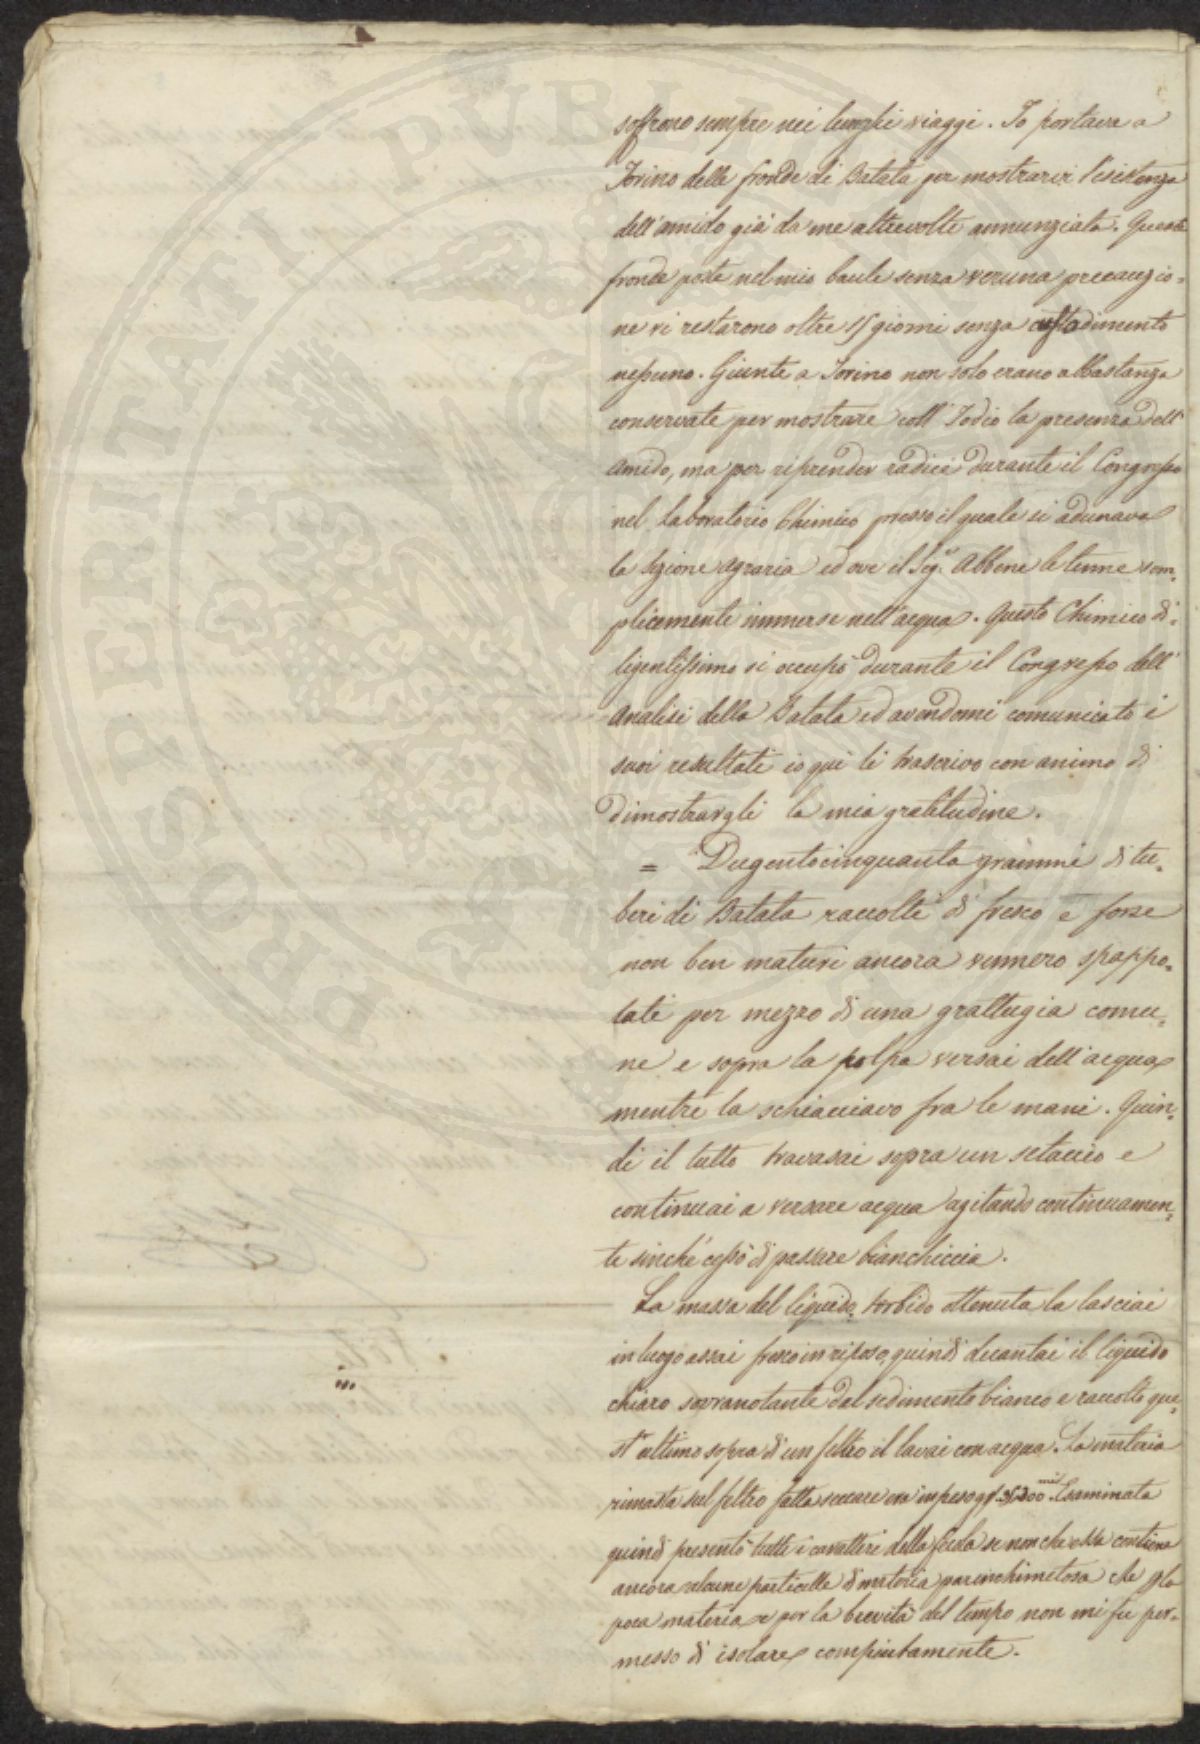 soffrono sempre nei lunghi viaggi. Io portava a
Torino delle fronde di Batata per mostrarvi l'esistenza
dell'amido già da me altrevolte annunziata. Queste
fronde poste nel mio baule senza veruna precauzio-
ne vi restarono oltre 15 giorni senza custodimento
nessuno. Giunte a Torino non solo erano abbastanza
conservate per mostrare coll'Jodio la presenza dell'
Amido, ma per riprender radici durante il Congresso
nel Laboratorio Chimico presso il quale si adunava
la Sezione Agraria ed ove il Sigr. Abbene le tenne sem-
plicemente immerse nell'acqua. Questo Chimico di-
ligentissimo si occupò durante il Congresso dell'
Analisi della Batata ed avendomi comunicato i
suoi resultati io quì li trascrivo con animo di
dimostrargli la mia gratitudine.
= Dugentocinquanta grammi di tu-
beri di Batata raccolti di fresco e forse
non ben maturi ancora vennero spappo-
lati per mezzo di una grattugia comu-
ne e sopra la polpa versai dell'acqua
mentre la schiacciavo fra le mani. Quin-
di il tutto travasai sopra un setaccio e
continuai a versare acqua agitando continuamen-
te sinchè cessò di passare bianchiccia.
La massa del liquido torbido ottenuta la lasciai
in luogo assai fresco in riposo, quindi decantai il liquido
chiaro sopranotante dal sedimento bianco e raccolto que-
st'ultimo sopra di un feltro il lavai con acqua. La materia
rimasta sul feltro fatta seccare era in peso mil Esaminata
quindi presentò tutti i caratteri della fecola se non che essa contiene
ancora alcune particelle di materia parenchimetosa che p la
poca materia e per la brevità del tempo non mi fu per-
messo di isolare compiutamente.
PROSPERITATI PUBLICAE